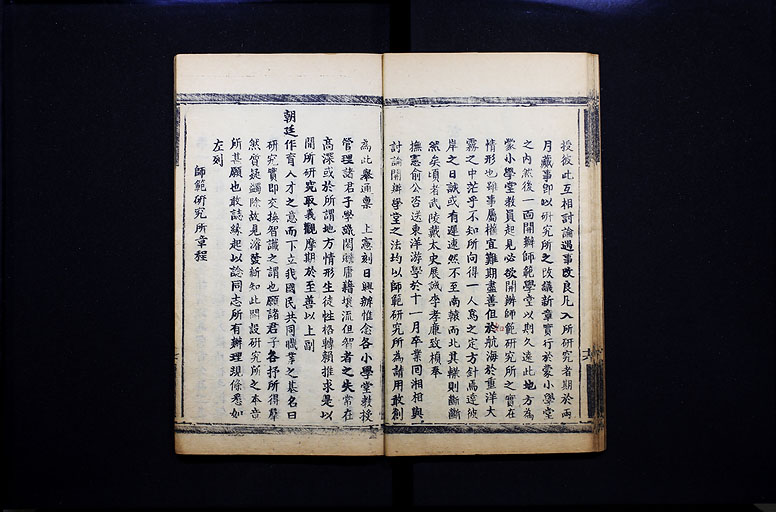 授彼此互相討論遇事改良凡入所研究者期於兩
月蕆事即以研究所之改議新章實行於蒙小學堂
之內然後一面開辦師範學堂以期久遠此地方為
蒙小學堂教員起見必欲開辦師範研究所之實在
情形也雖事屬權宜難期盡善但於航海於重洋大
霧之中茫乎不知所向得一人焉之定方針焉達彼
岸之日誠或有遲速然不至南轅而北其轍則斷斷
然矣頃者武陵戴太史展誠李孝廉致楨奉
撫憲俞公咨送東洋游學於十一月卒業同湘相與
討論開辦學堂之法均以師範研究所為請用敢創
為此舉通稟　上憲刻日興辦惟念各小學堂教授
管理諸君子學識閎贍庸藉壤流但智者之失常在
高深或於所謂地方情形生徒性格轉賴推求是以
間所研究取義觀摩期於至善以上副
朝廷作育人才之意而下立我國民共同職業之基名曰
研究實即交換智識之謂也願諸君子各抒所得羣
然質疑蠲除故見濬發新知此開設研究所之本旨
所甚願也敢誌緣起以諗同志所有辦理現條悉如
左刻
師範研究所章程